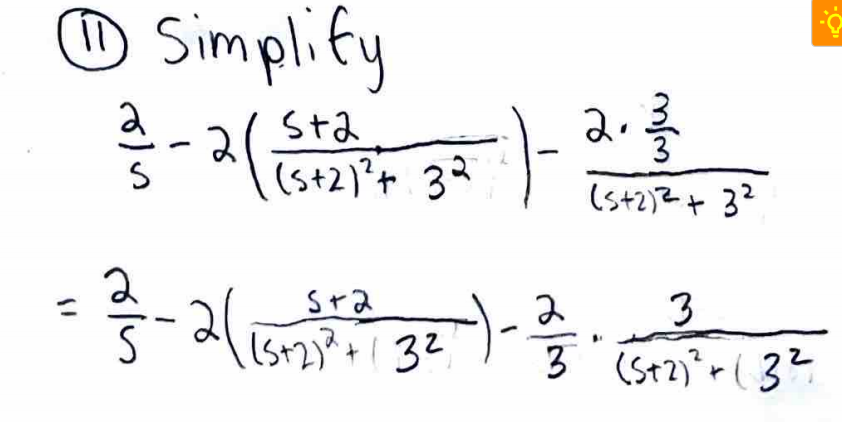 ⑪ Simplify
2/s - 2( (s+2)/((s+2)² + 3²) ) - (2 · 3/3)/((s+2)² + 3²)
= 2/s - 2( (s+2)/((s+2)² + 3²) ) - 2/3 · 3/((s+2)² + ( 3²